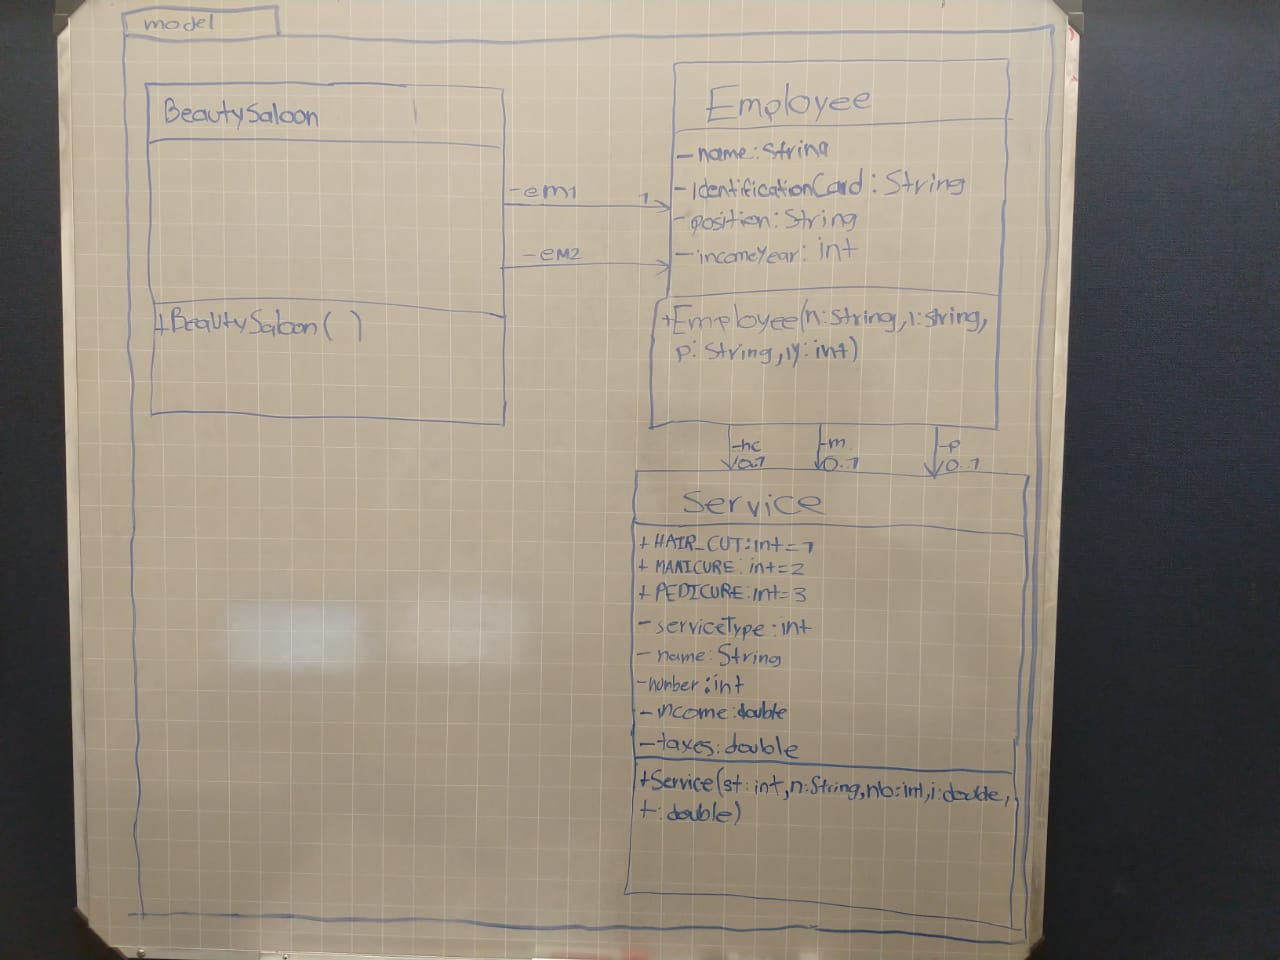 model
BeautySaloon
+BeautySaloon( )
-em1
1
-em2
Employee
-name:String
-identificationCard:String
-position:String
-incomeYear:int
+Employee(n:String,i:String,
p:String,iy:int)
-hc
0..1
-m
0..1
-p
0..1
Service
+HAIR_CUT:int=1
+MANICURE:int=2
+PEDICURE:int=3
-serviceType:int
-name:String
-number:int
-income:double
-taxes:double
+Service(st:int,n:String,nb:int,i:double,
t:double)